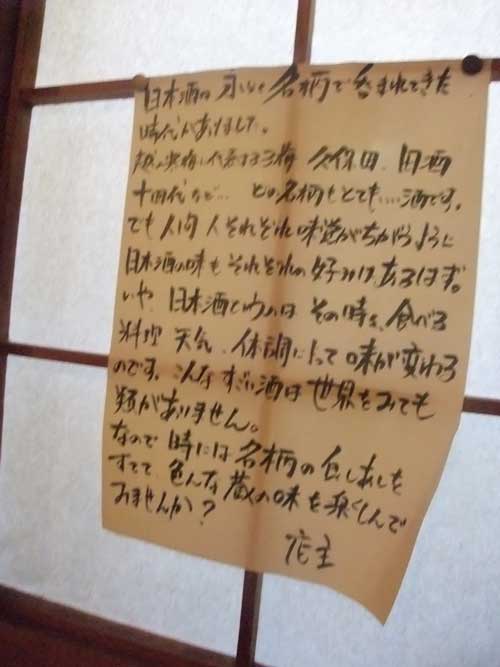 日本酒は永らく名柄で呑まれてきた
時代がありました。
越乃寒梅に代表する三梅 久保田、田酒
十四代など… どの名柄もとても…酒です。
でも人間 人それぞれ味覚がちがうように
日本酒の味もそれぞれの好みは、あるはず。
いや、日本酒というのは その時々、食べる
料理 天気、体調によって味が変わる
のです。こんな すごい酒は世界をみても
類がありません。
なので 時には名柄の
すてて、色んな蔵の味を楽しんで
みませんか？
店主